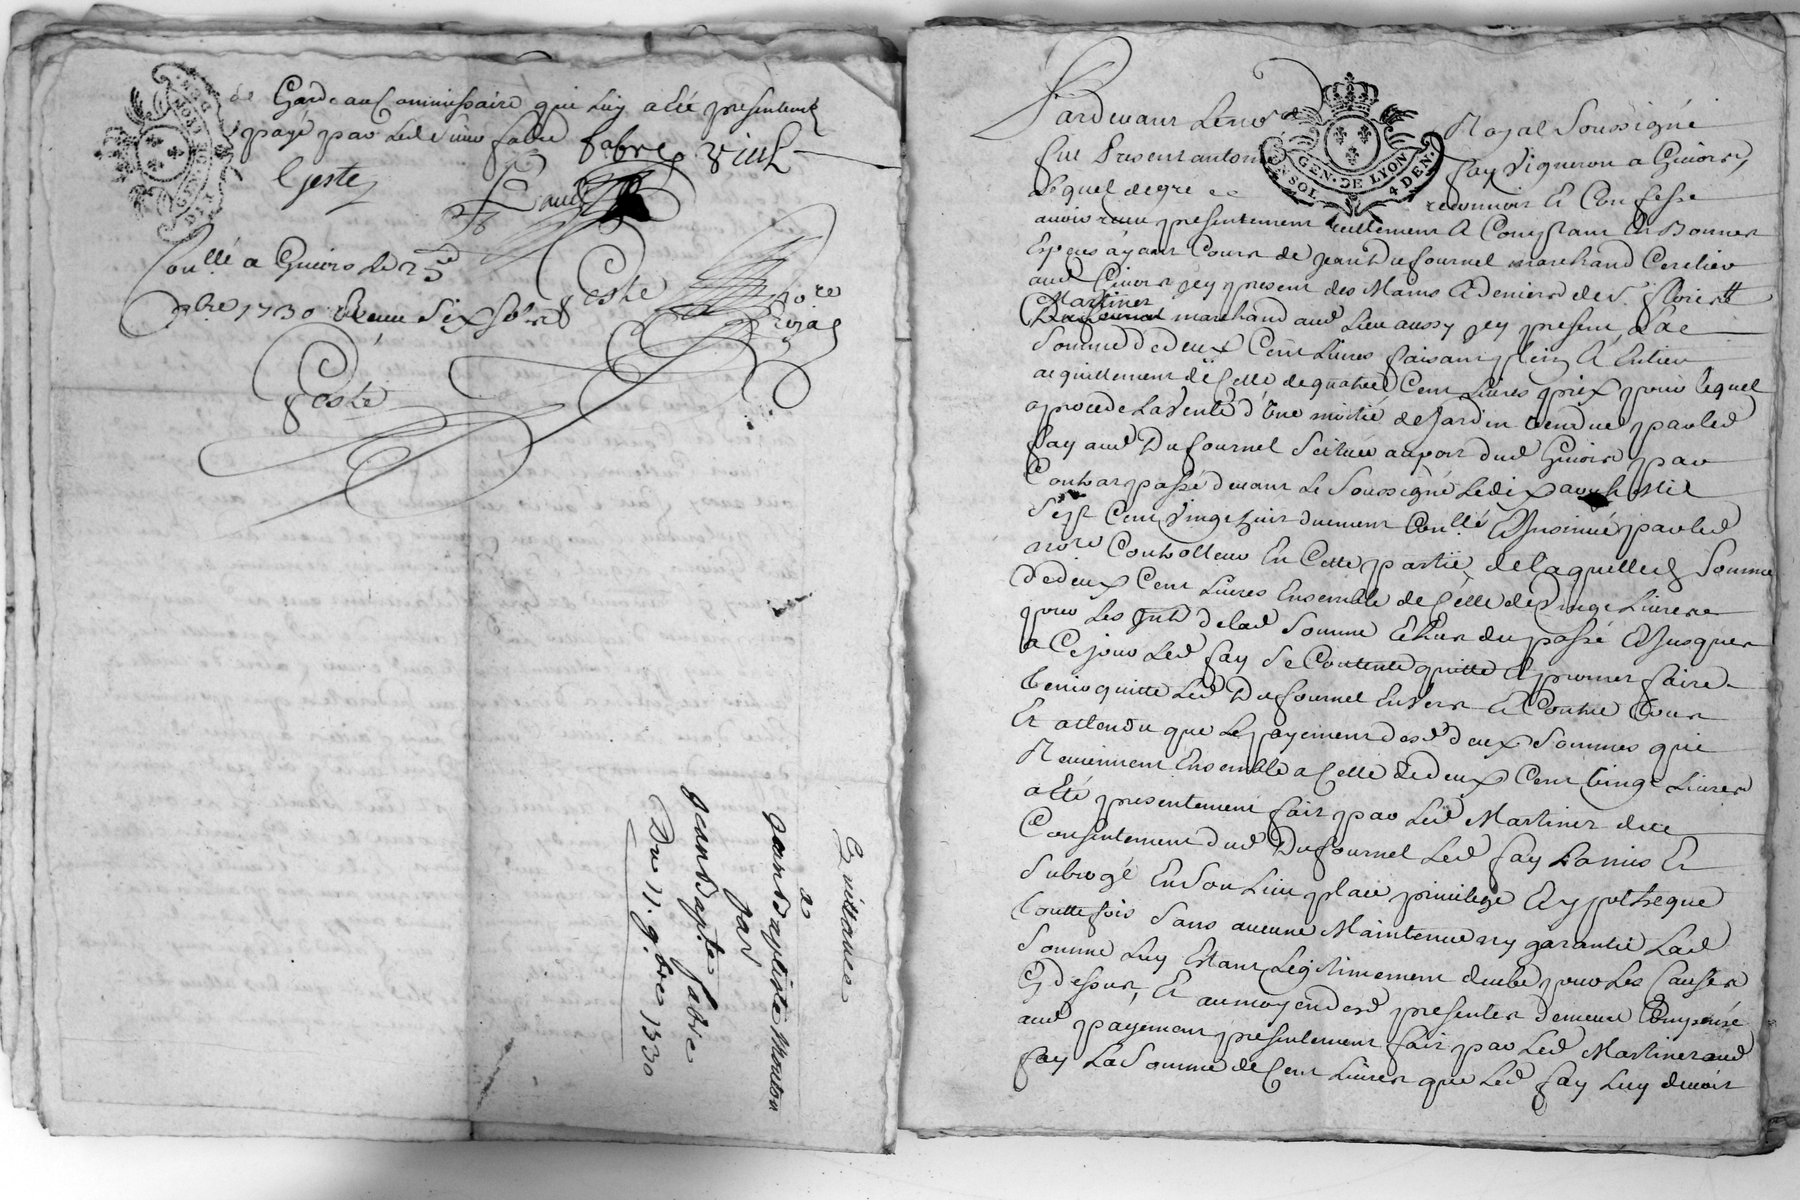 de Garde au Commissaire qui luy a été presentemt
payé par led sieur fabre fabre
Geste
GEN. DE LYON
Coullé a Givors le 25
9bre 1730 Receu six sols
Coste
nore
Royal
Coste
Quittance
a
Jean Baptiste Mouton
par
Jean Bapte fabre
Du 11. 9.bre 1730
Pardevant le nore Royal Soussigné
GEN. DE LYON
UN SOL 4 DEN.
fut Present antoine fay Vigneron a Givors
Lequel de gré &c reconnoit Et Confesse
avoir receu presentement reellement & Comptant En Bonnes
Especes ayant Cours de jean Dufournel marchand
aud Givors jcy present des Mains & deniers de Sr
Martinet marchand aud Lieu aussy jcy present, La
Somme de deux Cent Livres faisant plein & Entier
acquittement de Celle de quatre Cent Livres prix pour lequel
a procedé La Vente d'Une moitié de Jardin Vendue par led
fay aud Dufournel Scituée au port dud Givors par
Contrat passé devant Le Soussigné Le dix aoust Mil
Sept Cent Vingt huit duement Conllé & Insinué par led
nore Controlleur En Cette partie, de laquelle Somme
de deux Cent Livres Ensemble de Celle de Vingt Livres
pour Les Inth de lad Somme Echus du passé & Jusques
a Ce jour Led fay Se Contente quitte & promet faire
tenir quitte Led Dufournel Envers & Contre Tous
Et attendu que Le payement desd deux Sommes qui
Reviennent Ensemble a Celle de deux Cent Vingt Livres
a Eté presentement fait par Led Martinet du
Consentement dud Dufournel Led fay L'a mis Et
Subrogé En Son Lieu place privilege & ypotheque
touttefois Sans aucune Maintenue ny garantie Lad
Somme Luy Estant Legitimement deube pour Les Causes
Cy dessus, Et au moyen desd presentes demeure Compensé
aud payement presentement fait par Led Martinet aud
fay La Somme de Cent Livres que Led fay Luy devoit